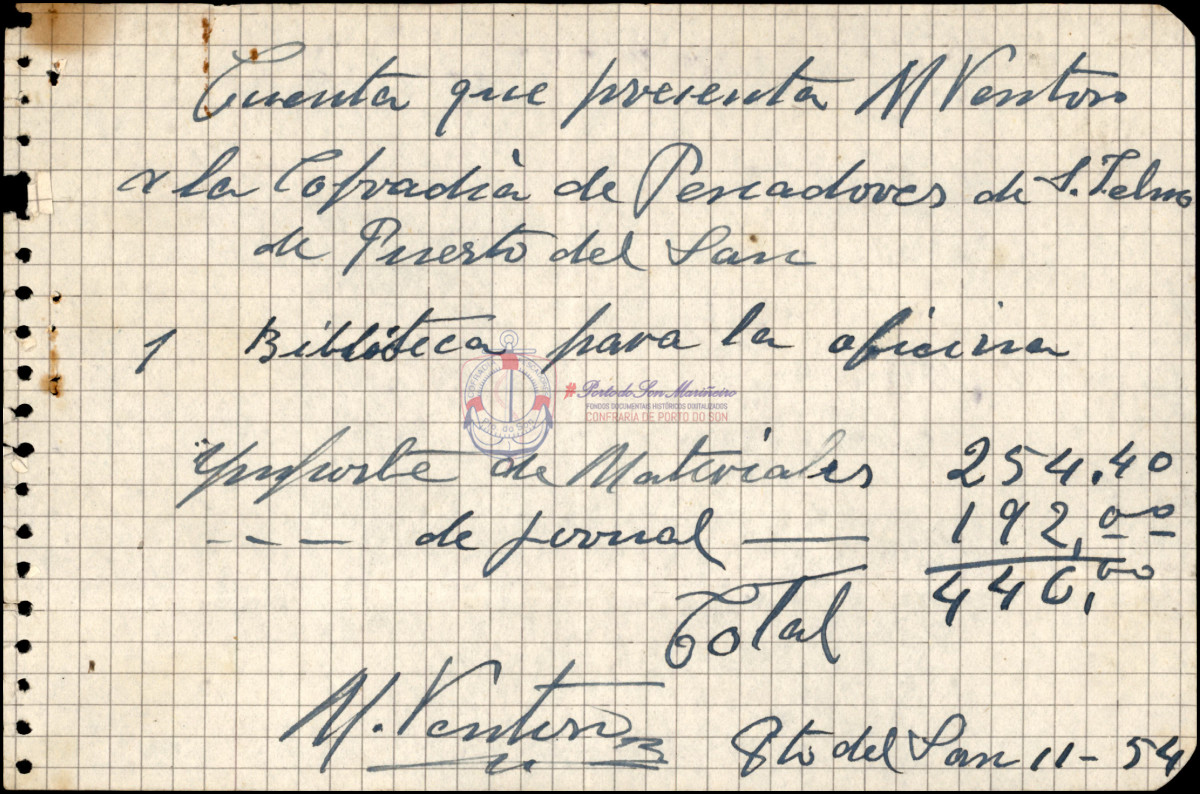 Cuenta que presenta M Ventoso
a la Cofradià de Pescadores de S. Telmo
de Puerto del Son
1 Biblioteca para la oficina
COFRADIA PESCADORES
Pto. do Son
#Porto do Son Mariñeiro
FONDOS DOCUMENTAIS HISTÓRICOS DIGITALIZADOS
CONFRARÍA DE PORTO DO SON
Ymporte de Materiales 254.40
--- de jornal — 192,00
Total 446,00
M. Ventoso
Pto del Son 11-54